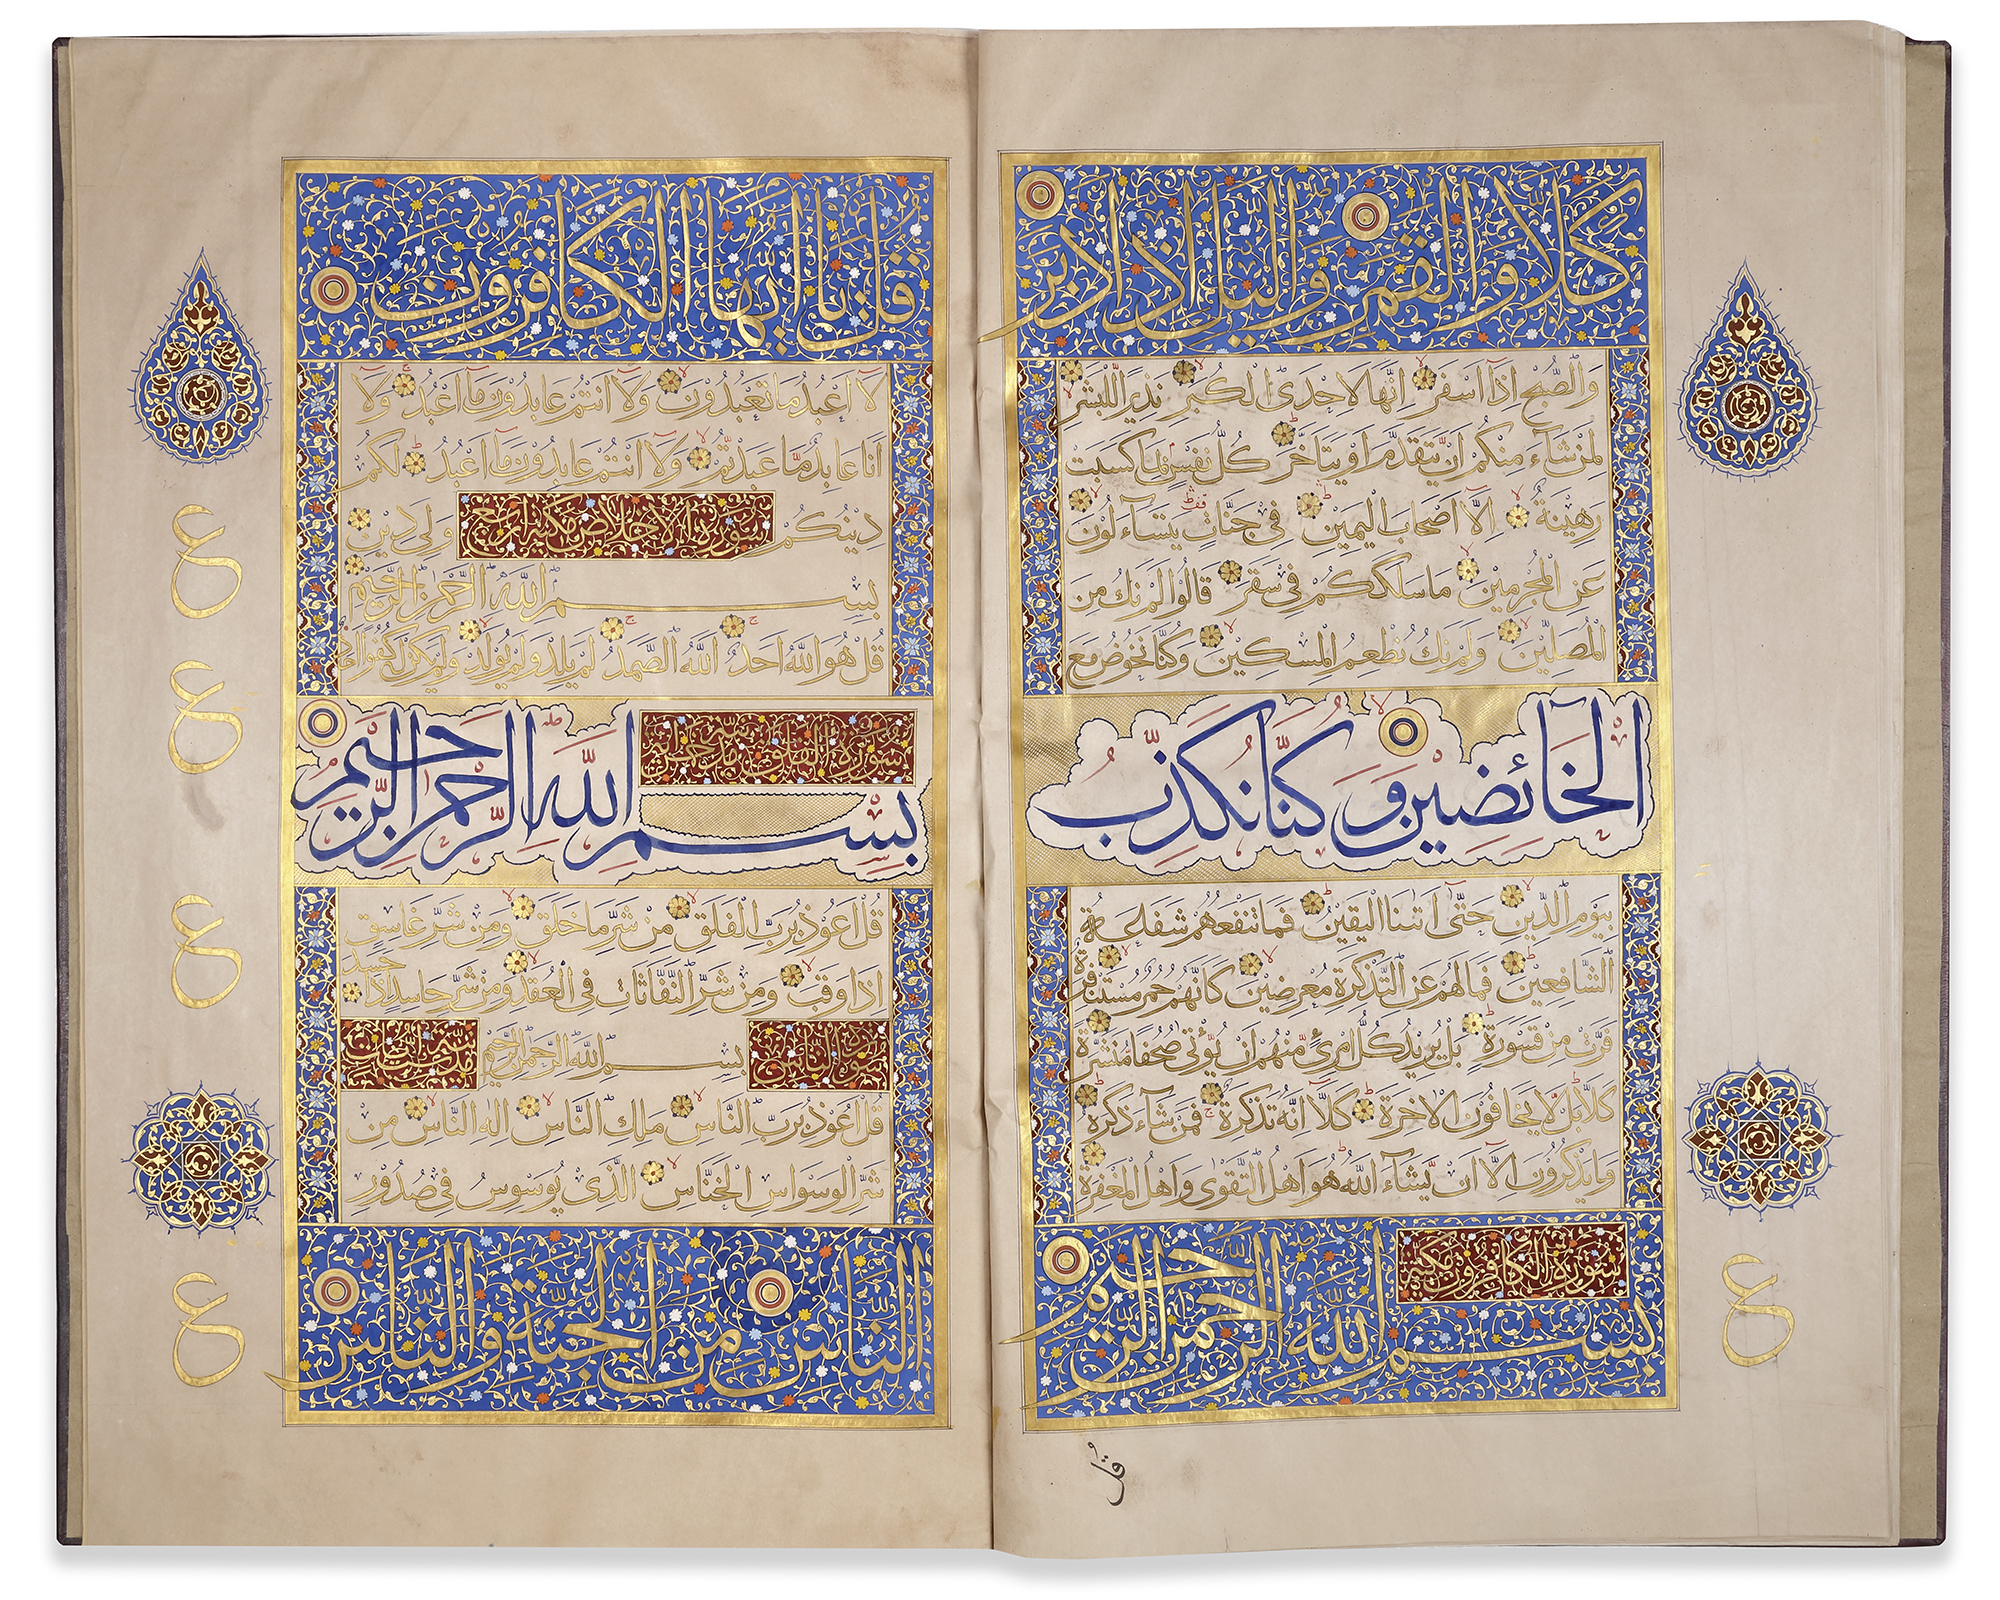 كلا والقمر والليل اذ ادبر
والصبح اذا اسفر انها لاحدى الكبر نذيرا للبشر
لمن شاء منكم ان يتقدم او يتاخر كل نفس بما كسبت
رهينة الا اصحاب اليمين في جنات يتساءلون
عن المجرمين ما سلككم في سقر قالوا لم نك من
المصلين ولم نك نطعم المسكين وكنا نخوض مع
الخائضين وكنا نكذب
بيوم الدين حتى اتىنا اليقين فما تنفعهم شفاعة
الشافعين فما لهم عن التذكرة معرضين كانهم حمر مستنفرة
فرت من قسورة بل يريد كل امرئ منهم ان يؤتى صحفا منشرة
كلا بل لا يخافون الاخرة كلا انه تذكرة فمن شاء ذكره
وما يذكرون الا ان يشاء الله هو اهل التقوى واهل المغفرة
سورة الكافرون مكية
بسم الله الرحمن الرحيم
ع
قل
قل يا ايها الكافرون
لا اعبد ما تعبدون ولا انتم عابدون ما اعبد ولا
انا عابد ما عبدتم ولا انتم عابدون ما اعبد لكم
دينكم ولي دين
سورة الاخلاص مكية اربع
بسم الله الرحمن الرحيم
قل هو الله احد الله الصمد لم يلد ولم يولد ولم يكن له كفوا احد
سورة الفلق
بسم الله الرحمن الرحيم
قل اعوذ برب الفلق من شر ما خلق ومن شر غاسق
اذا وقب ومن شر النفاثات في العقد ومن شر حاسد اذا حسد
سورة الناس
بسم الله الرحمن الرحيم
قل اعوذ برب الناس ملك الناس اله الناس من
شر الوسواس الخناس الذي يوسوس في صدور
الناس من الجنة والناس
ع
ع
ع
ع